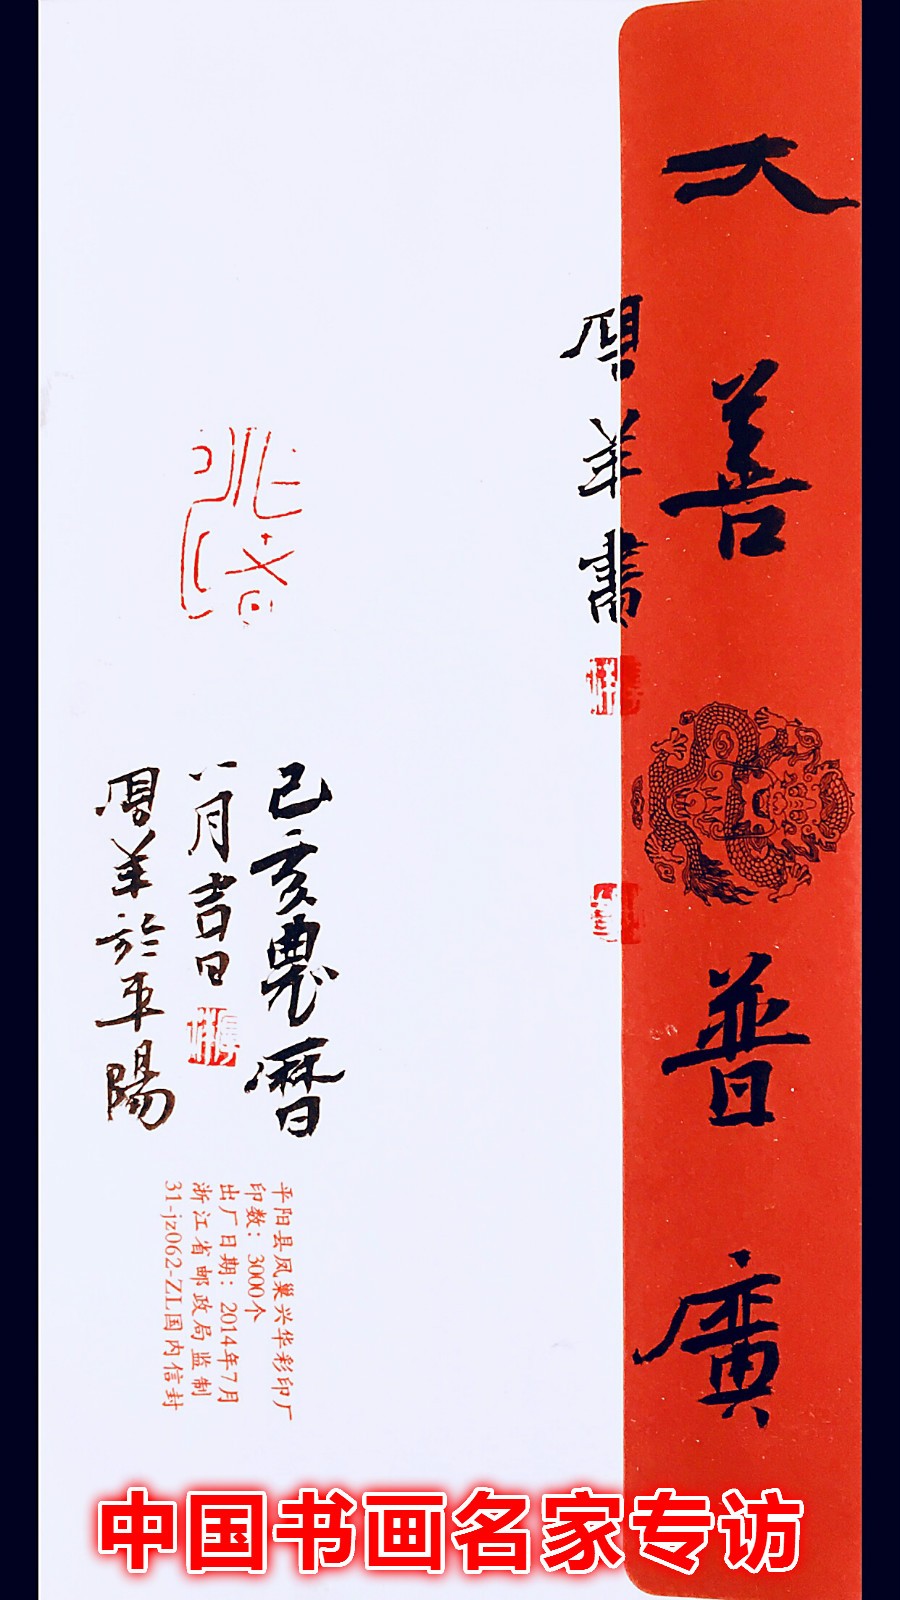 大善普廣
羊書
己亥農曆
八月吉日
羊於平陽
平阳县凤巢兴华彩印厂
印数：3000个
出厂日期：2014年7月
浙江省邮政局监制
31-jz062-ZL国内信封
中国书画名家专访